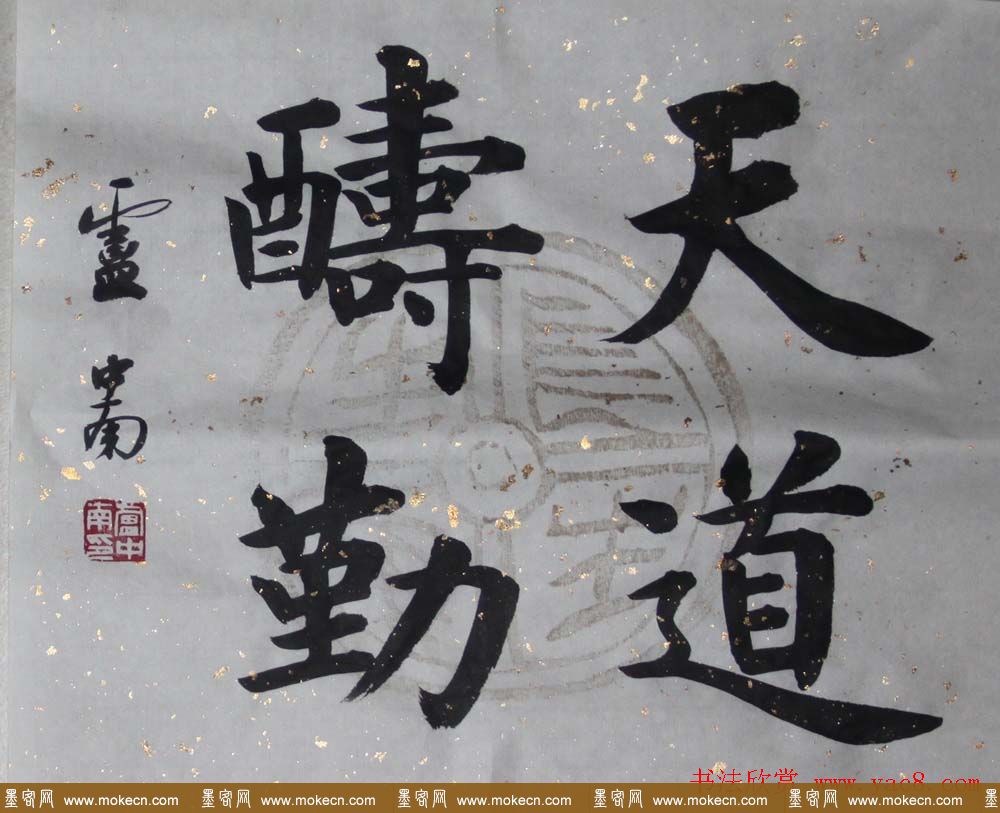 天道
醻勤
盧中南
盧中南印
书法欣赏 www.yac8.com
墨客网 www.mokecn.com 墨客网 www.mokecn.com 墨客网 www.mokecn.com 墨客网 www.mokecn.com 墨客网 www.mokecn.com